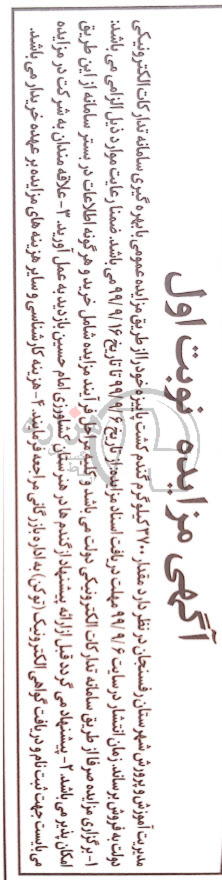 آگهی مزایده نوبت اول
مدیریت آموزش و پرورش شهرستان رفسنجان در نظر دارد مقدار ۳۷۰۰ کیلوگرم گندم کشت پاییزه خود را از طریق مزایده عمومی با بهره گیری سامانه تدارکات الکترونیکی
دولت به فروش برساند. زمان انتشار در سایت ۹۹/۹/۶ مهلت دریافت اسناد مزایده: از تاریخ ۹۹/۹/۶ تا تاریخ ۹۹/۹/۱۶ می باشد. ضمنا رعایت موارد ذیل الزامی می باشد:
۱- برگزاری مزایده صرفا از طریق سامانه تدارکات الکترونیکی دولت می باشد و کلیه مراحل فرآیند مزایده شامل خرید و هرگونه اطلاعات در بستر سامانه از این طریق
امکان پذیر می باشد. ۲- پیشنهاد می گردد قبل ازارائه پیشنهاد ازگندم ها در هنرستان کشاورزی امام حسین بازدید به عمل آورید. ۳- علاقه مندان به شرکت در مزایده
می بایست جهت ثبت نام و دریافت گواهی الکترونیک (توکن) به اداره بازرگانی مراجعه فرمایند. ۴- هزینه کارشناسی و سایر هزینه های مزایده بر عهده خریدار می باشد.